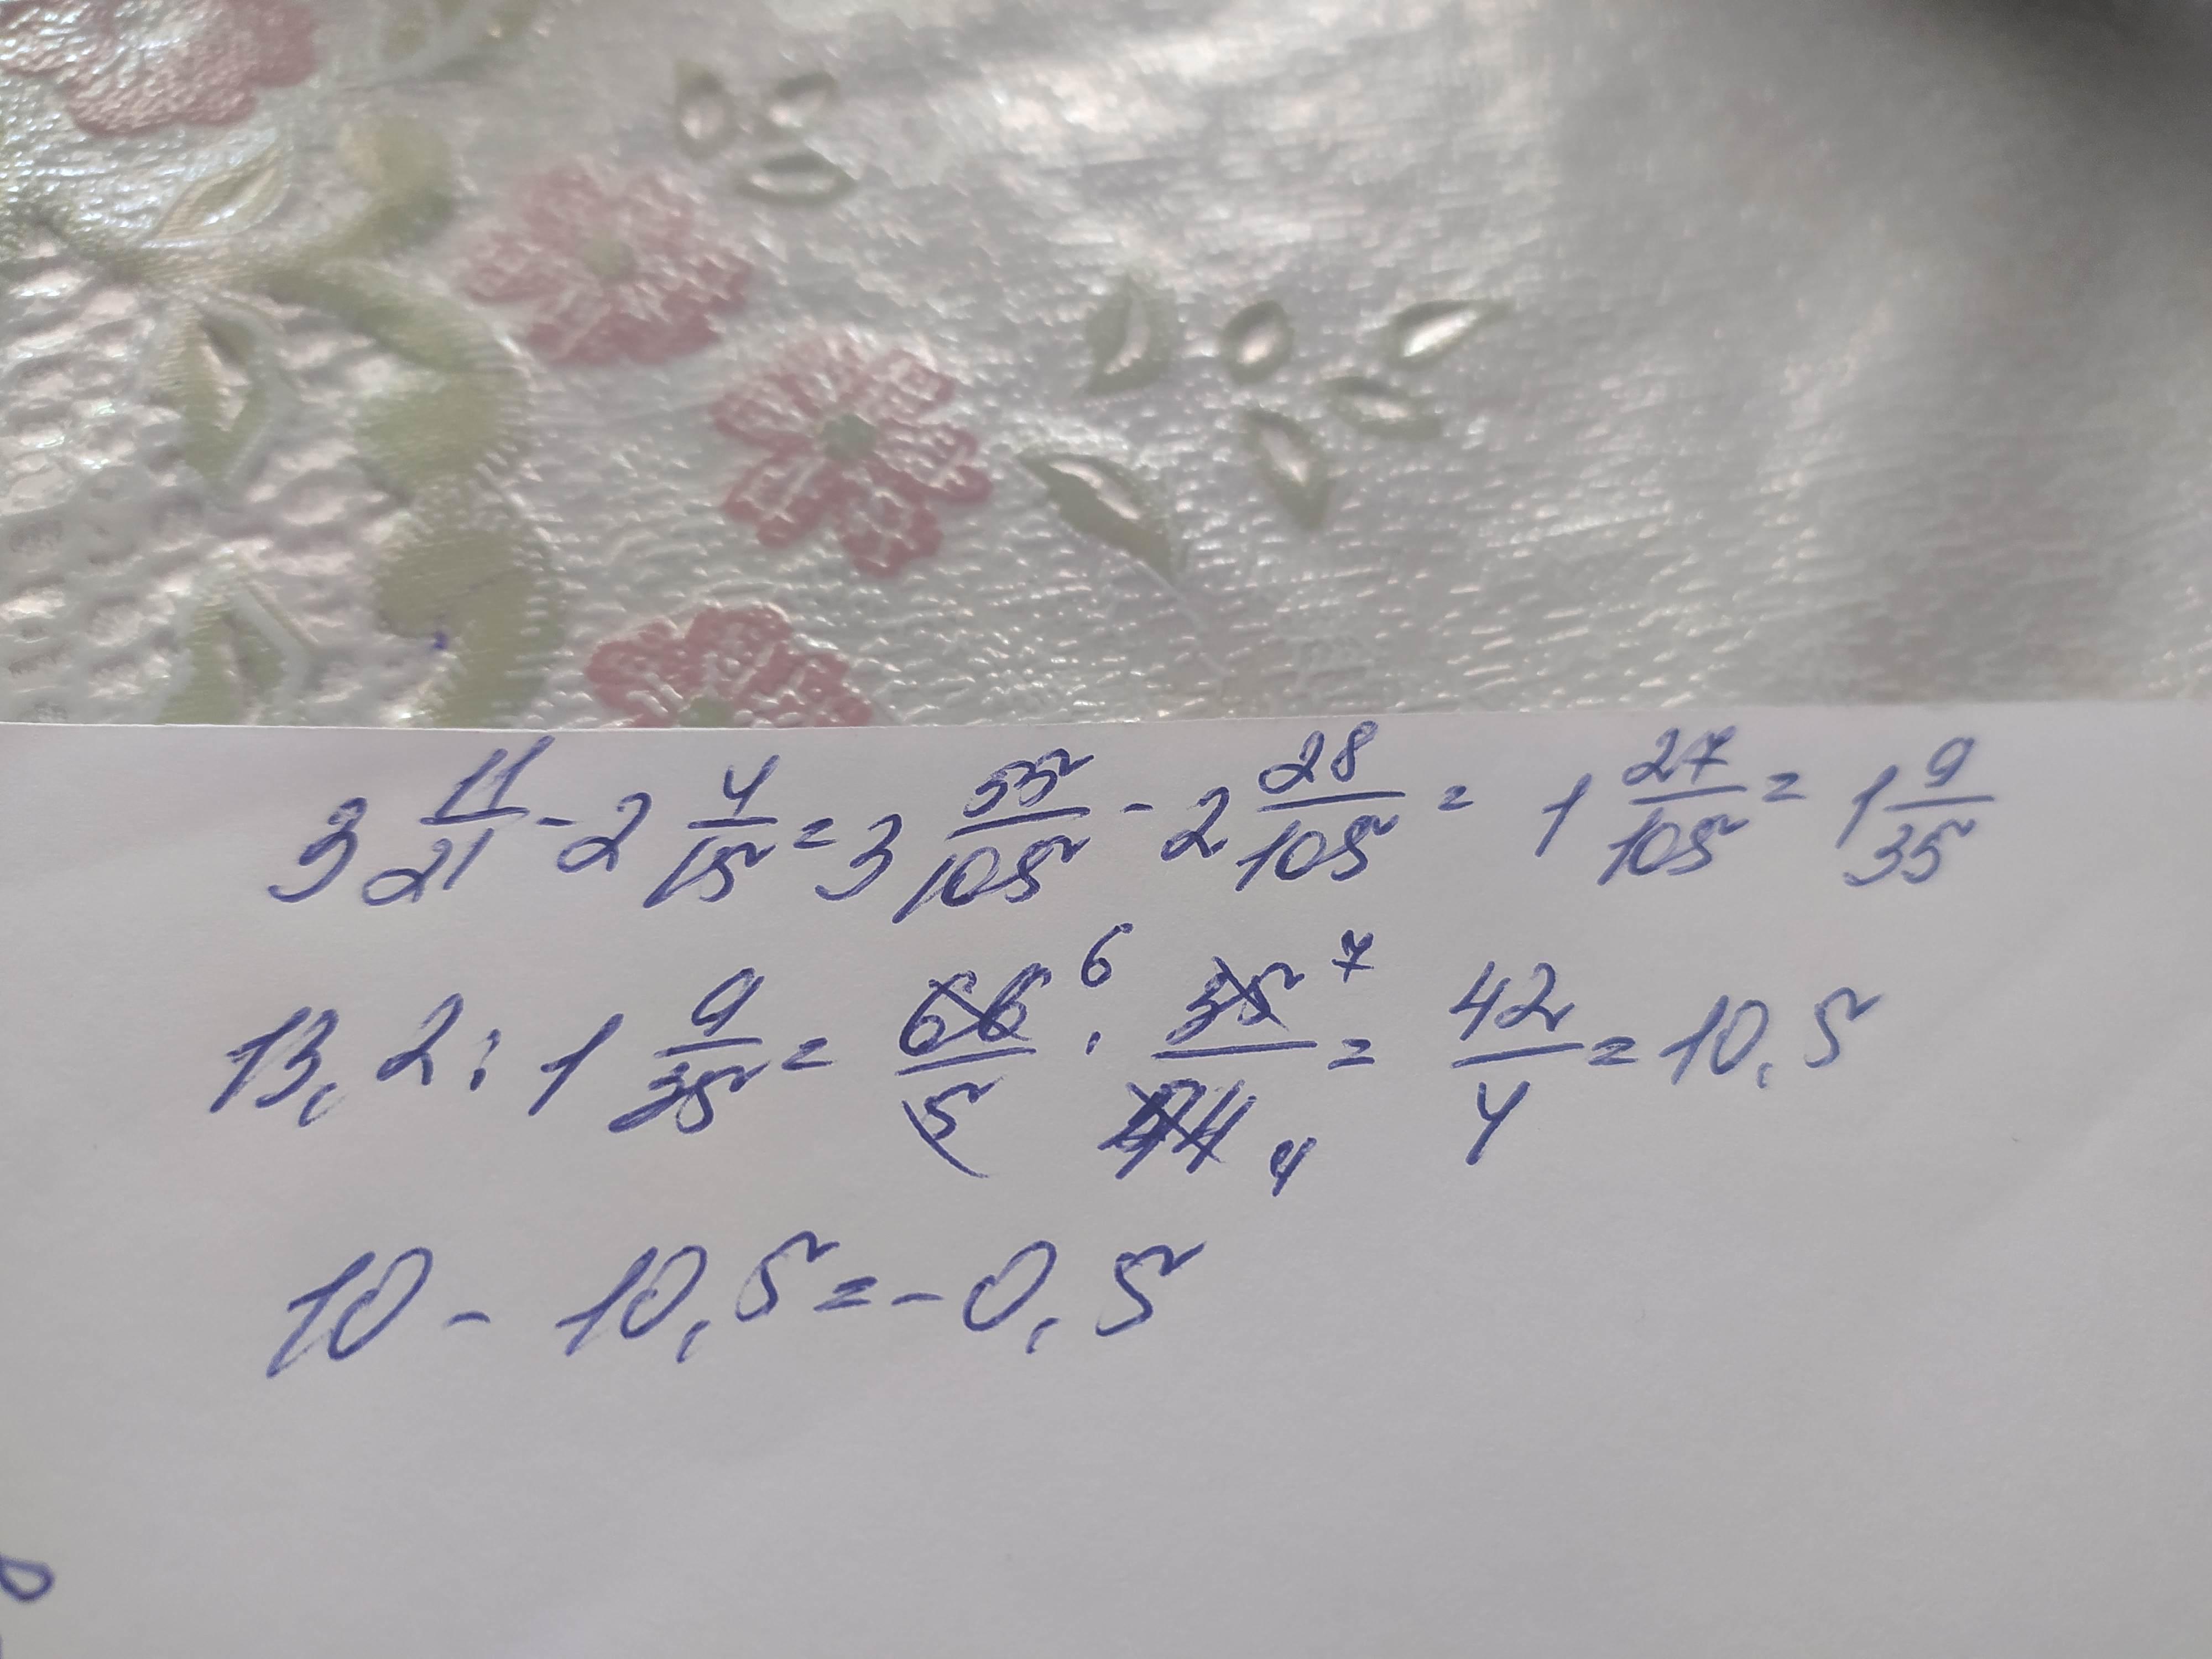 3 11/21 - 2 4/15 = 3 55/105 - 2 28/105 = 1 27/105 = 1 9/35
13,2 : 1 9/35 = 66/5 6 · 35/44 7 4 = 42/4 = 10,5
10 - 10,5 = -0,5